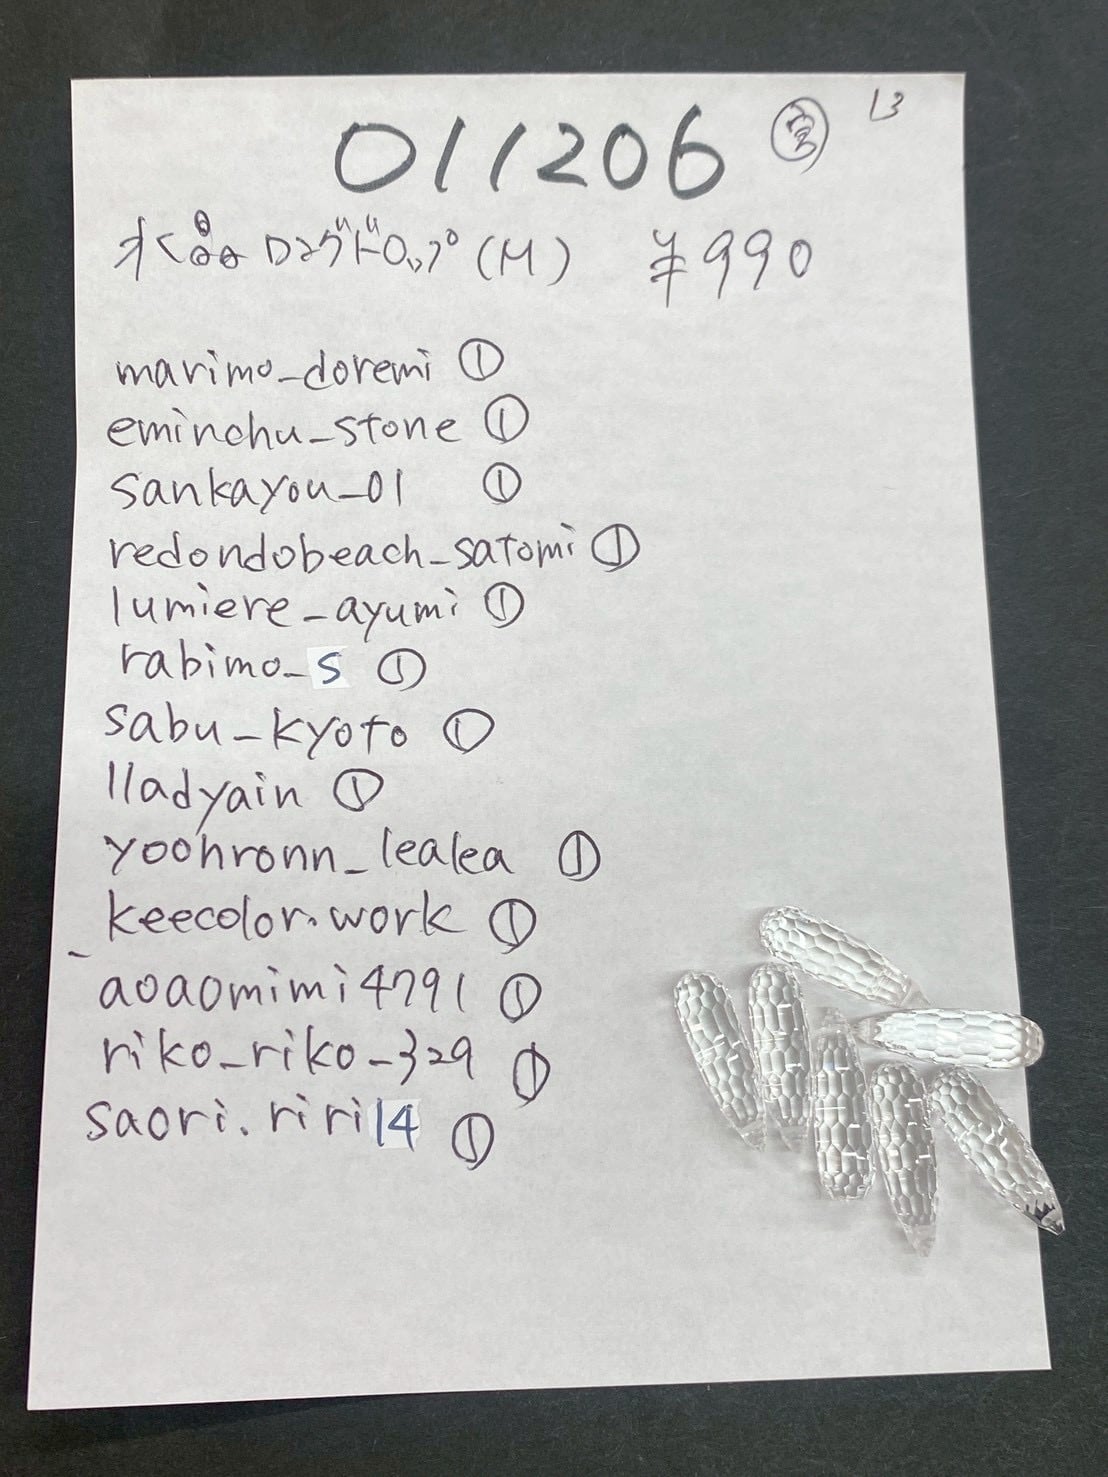 011206
13
水晶ロングドロップ(M) ¥990
marimo_doremi ①
eminchu_stone ①
sankayou_01 ①
redondobeach_satomi ①
lumiere_ayumi ①
rabimo_s ①
sabu_kyoto ①
lladyain ①
yoohronn_lealea ①
keecolor.work ①
aoaomimi4791 ①
riko_riko_329 ①
saori.riri14 ①